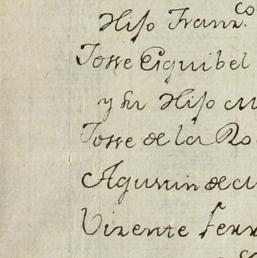 Hijo Franz.co
Josse Esquibel
y su Hijo
Josse de la Ro
Agustin de
Vizente Ferr